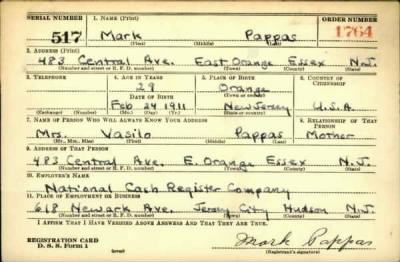 SERIAL NUMBER 1. NAME (Print) ORDER NUMBER
517 Mark Pappas 1764
(First) (Middle) (Last)
2. ADDRESS (Print)
483 Central Ave. East Orange Essex N.J.
(Number and street or R. F. D. number) (Town) (County) (State)
3. TELEPHONE 4. AGE IN YEARS 5. PLACE OF BIRTH 6. COUNTRY OF CITIZENSHIP
29 Orange
DATE OF BIRTH (Town or county)
Feb 24 1911 New Jersey U.S.A.
(Exchange) (Number) (Mo.) (Day) (Yr.) (State or country)
7. NAME OF PERSON WHO WILL ALWAYS KNOW YOUR ADDRESS 8. RELATIONSHIP OF THAT PERSON
Mrs. Vasilo Pappas Mother
(Mr., Mrs., Miss) (First) (Middle) (Last)
9. ADDRESS OF THAT PERSON
483 Central Ave. E. Orange Essex N.J.
(Number and street or R. F. D. number) (Town) (County) (State)
10. EMPLOYER'S NAME
National Cash Register Company
11. PLACE OF EMPLOYMENT OR BUSINESS
618 Newark Ave. Jersey City Hudson N.J.
(Number and street or R. F. D. number) (Town) (County) (State)
I AFFIRM THAT I HAVE VERIFIED ABOVE ANSWERS AND THAT THEY ARE TRUE.
REGISTRATION CARD
D. S. S. Form 1 (over) Mark Pappas
(Registrant's signature)